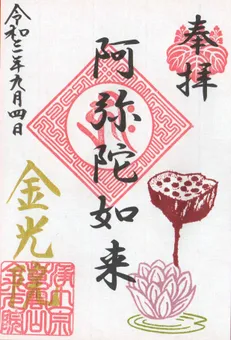 奉拝
阿弥陀如来
令和二年九月四日
金光